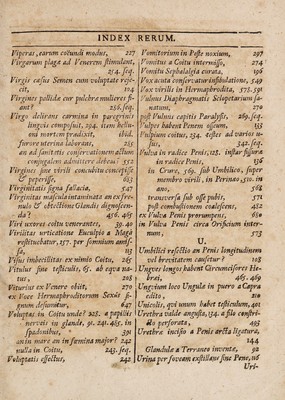 INDEX RERUM.
Viperas, earum coëundi modus, 227
Virgarum plaga ad Venerem stimulant,
254. seq.
Virgis cæsus Semen cum voluptate rejecit,
104
Virgines pallidæ cur pulchra mulieres fiant?
256. seq.
Virgo delirans carmina in peregrinis
linguis composuit, 294. item belli
mortem prædixit, ibid.
furore uterino laborans, 285
an ad sanitatis conservationem actum
conjugalem admittere debeat? 552
Virgines sine virili concubitu concepisse
& peperisse.
Virginitatis signa fallacia, 547
Virginitas masculina intaminata an ex frenulo
& obtectione Glandis dignoscenda?
456. 465
Viri uxores coitu venerantes, 39. 40
Virilitas arteficione Eucuipio a Maga
restitucbatur, 157. per somnium amissa,
113
Visus imbecilitas ex nimio Coitu, 245
Vitulus sine testiculis, 65. ab equa natus,
208
Viturius ex Venere obiit, 270
ex Voce Hermaphroditorum Sexûs signum
desumitur,
Voluptas in Coitu unde? 128. a papillis
nerveis in glande, 91. 241. 485. in
spadonibus, 391
an in mare an in fœmina major? 242
nulla in Coitu, 243. seq.
Voluptatis effectus, 242
Vomitorium in Peste noxium, 297
Vomitus a Coitu intermisso, 274
Vomitu Sephalalgia curata, 196
Vox acuta conservatur infibulatione, 549
Vox virilis in Hermaphrodita, 578. 591
Vulnus Diaphragmatis Sclopetarium sanatum,
270
post Vulnus capitis Paralysis, 269. seq.
Vulpes habent Penem osseum, 135
Vulpium coitus, 234. testes ad varios usus,
342. seq.
Vulva in radice Penis, 128. instar fissura
in radice Penis, 136
in Crure, 569. sub Umbilico, super
membro virili, in Perinæo, 510. in
ano, 568
transversa sub osse pubis, 571
post combustionem coalescens, 482
ex Vulva Penis prorumpens, 680
in Vulva Penis circa Orificium internum,
573
U.
Umbelici resectio an Penis longitudinem
vel brevitatem causetur? 108
Ungues longos habent Circumcisores Hebræi,
465. 469
Ungvium loco Ungula in puero a Capra
edito, 210
Unicolis, qui unum habet testiculum, 401
Urethra valde angusta, 354. a filo constricto
perforata, 495
Urethræ incisio a Penis arcta ligatura,
144
Glandula a Terraneo inventa, 92
Urina per foveam exstillans sine Pene, 116
Uri-